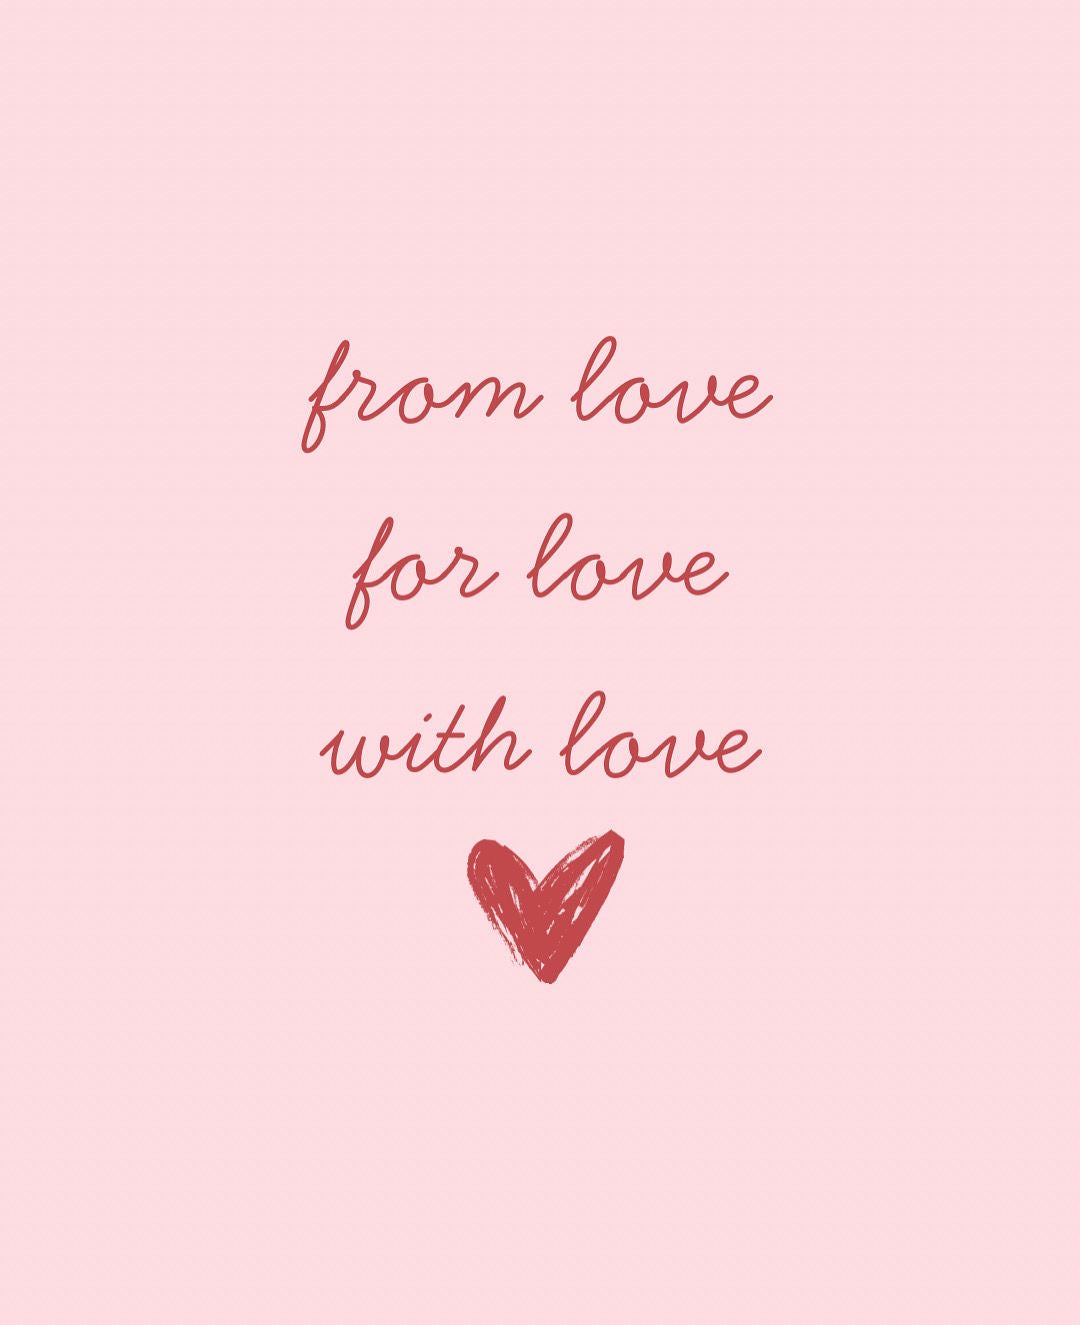 from love
for love
with love